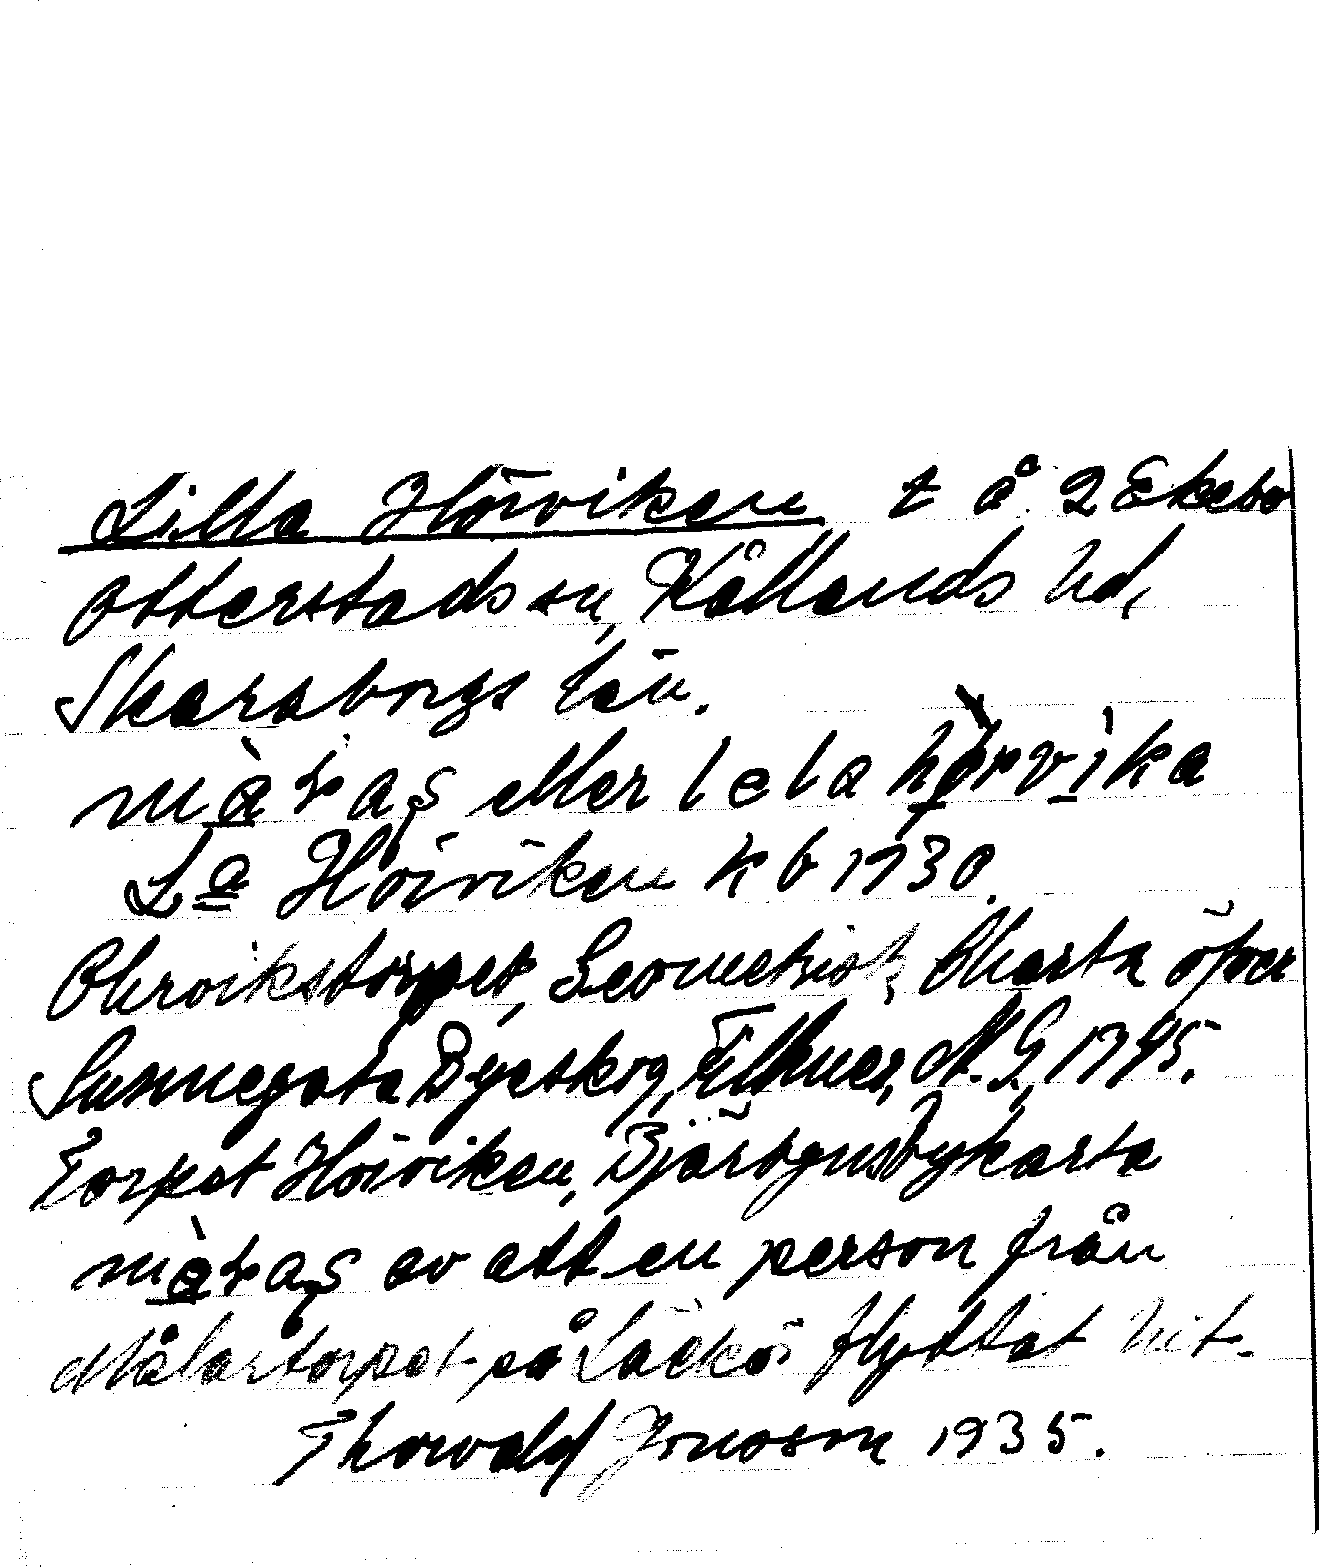 Lilla Hörviken t å 2 Ekebo
Otterstads sn, Kållands hd,
Skaraborgs län.
màɫaʂ eller lela hö̀rvìka
La Hörviken kb 1930.
Ohrvikstorpet, Geometrisk Charta öfver
Sunnegata Byeskog, Fillmer, N. G. 1795.
Torpet Hörviken, Bjärbyns bykarta
màɫaʂ av att en person från
Målartorpet på Läckö flyttat hit.
Thorvald Jonsson 1935.